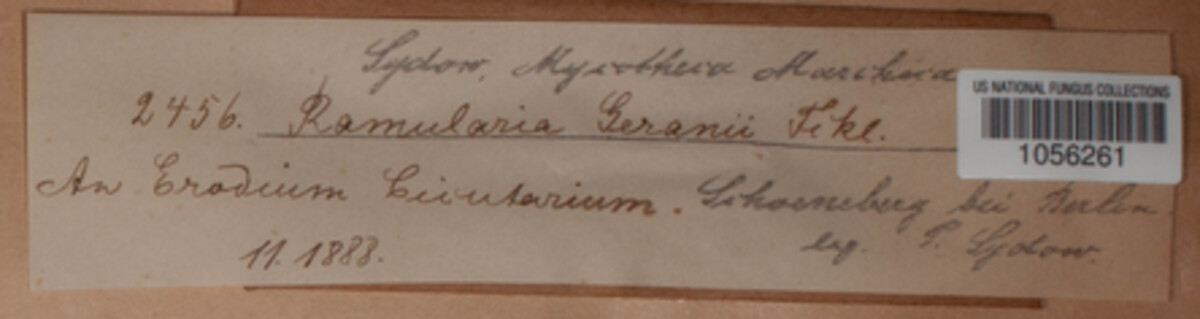 Sydow, Mycotheca Marchica
US NATIONAL FUNGUS COLLECTIONS
1056261
2456. Ramularia Geranii Fckl.
An Erodium Cicutarium. Schoeneberg bei Berlin.
11. 1888. leg. P. Sydow.